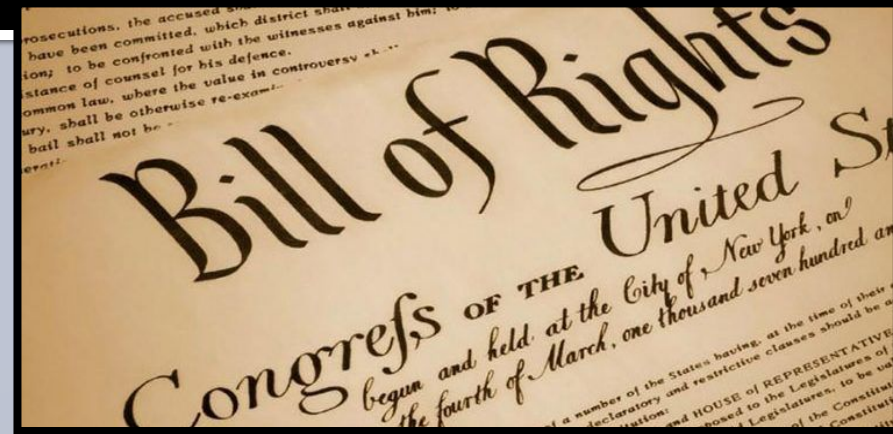 rosecutions, the accused
have been committed, which district
ion; to be confronted with the witnesses against him;
stance of counsel for his defence.
ommon law, where the value in controversy
ury, shall be otherwise re-exam
bail shall not be
Bill of Rights
Congreſs OF THE United St
begun and held at the City of New York, on
the fourth of March, one thousand seven hundred an
a number of the States having, at the time of their
declaratory and restrictive clauses should be a
itution:
and HOUSE of REPRESENTATIVE
posed to the Legislatures of
Legislatures, to be va
of the Constitu
Constitut